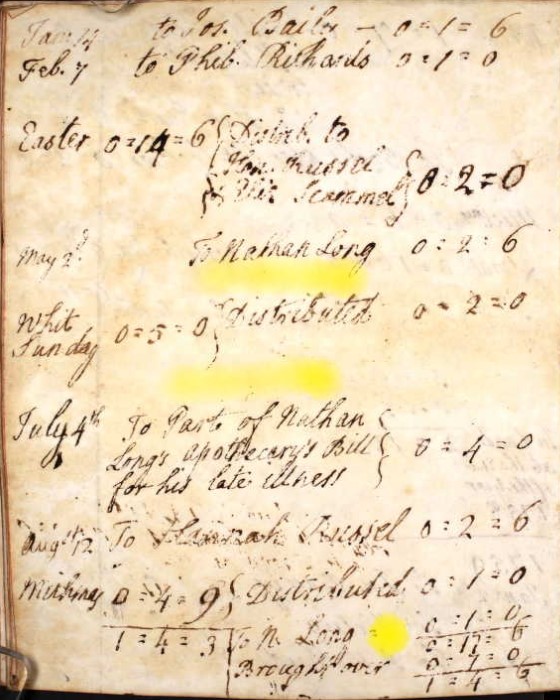 Jan. 14 to Jos. Bailey - 0 = 1 = 6
Feb. 7 to Phib. Richards 0 = 1 = 0
Easter 0 = 14 = 6 { Distrib. to
Han. Russel
Eliz. Scammel } 0 = 2 = 0
May 2d. To Nathan Long 0 = 2 = 6
Whit
Sunday 0 = 5 = 0 { Distributed 0 = 2 = 0
July 4th To Part of Nathan
Long's Apothecary's Bill
for his late illness { 0 = 4 = 0
Augst 12 To Hannah Russel 0 = 2 = 6
0 = 4 = 9 } Distributed 0 = 1 = 0
1 = 4 = 3 To N. Long = 0 = 1 = 0
0 = 17 = 6
Brought over
1 = 4 = 6